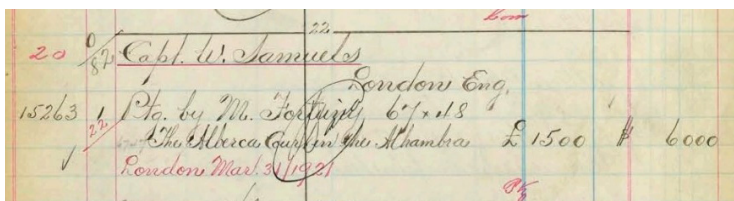 22
20 0/82 Capt. W. Samuels
London Eng.
15263 1 Ptg. by M. Fortuny 67x48
22 "The Alberca Court in the Alhambra £ 1500 $ 6000
✓ London Mar. 31/1921